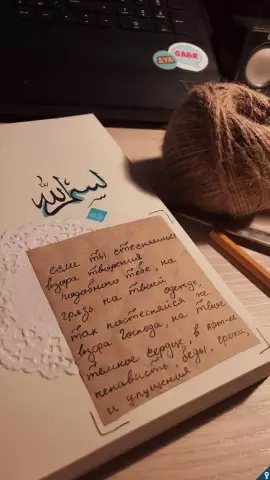 AYA
SABR
بسم الله
если ты стесняешься
взора творения
подобного тебе, на
грязь на твоей одежде,
так постесняйся же
взора Господа, на твое
темное сердце, в кот-м
ненависть, беды, греха,
и упущения